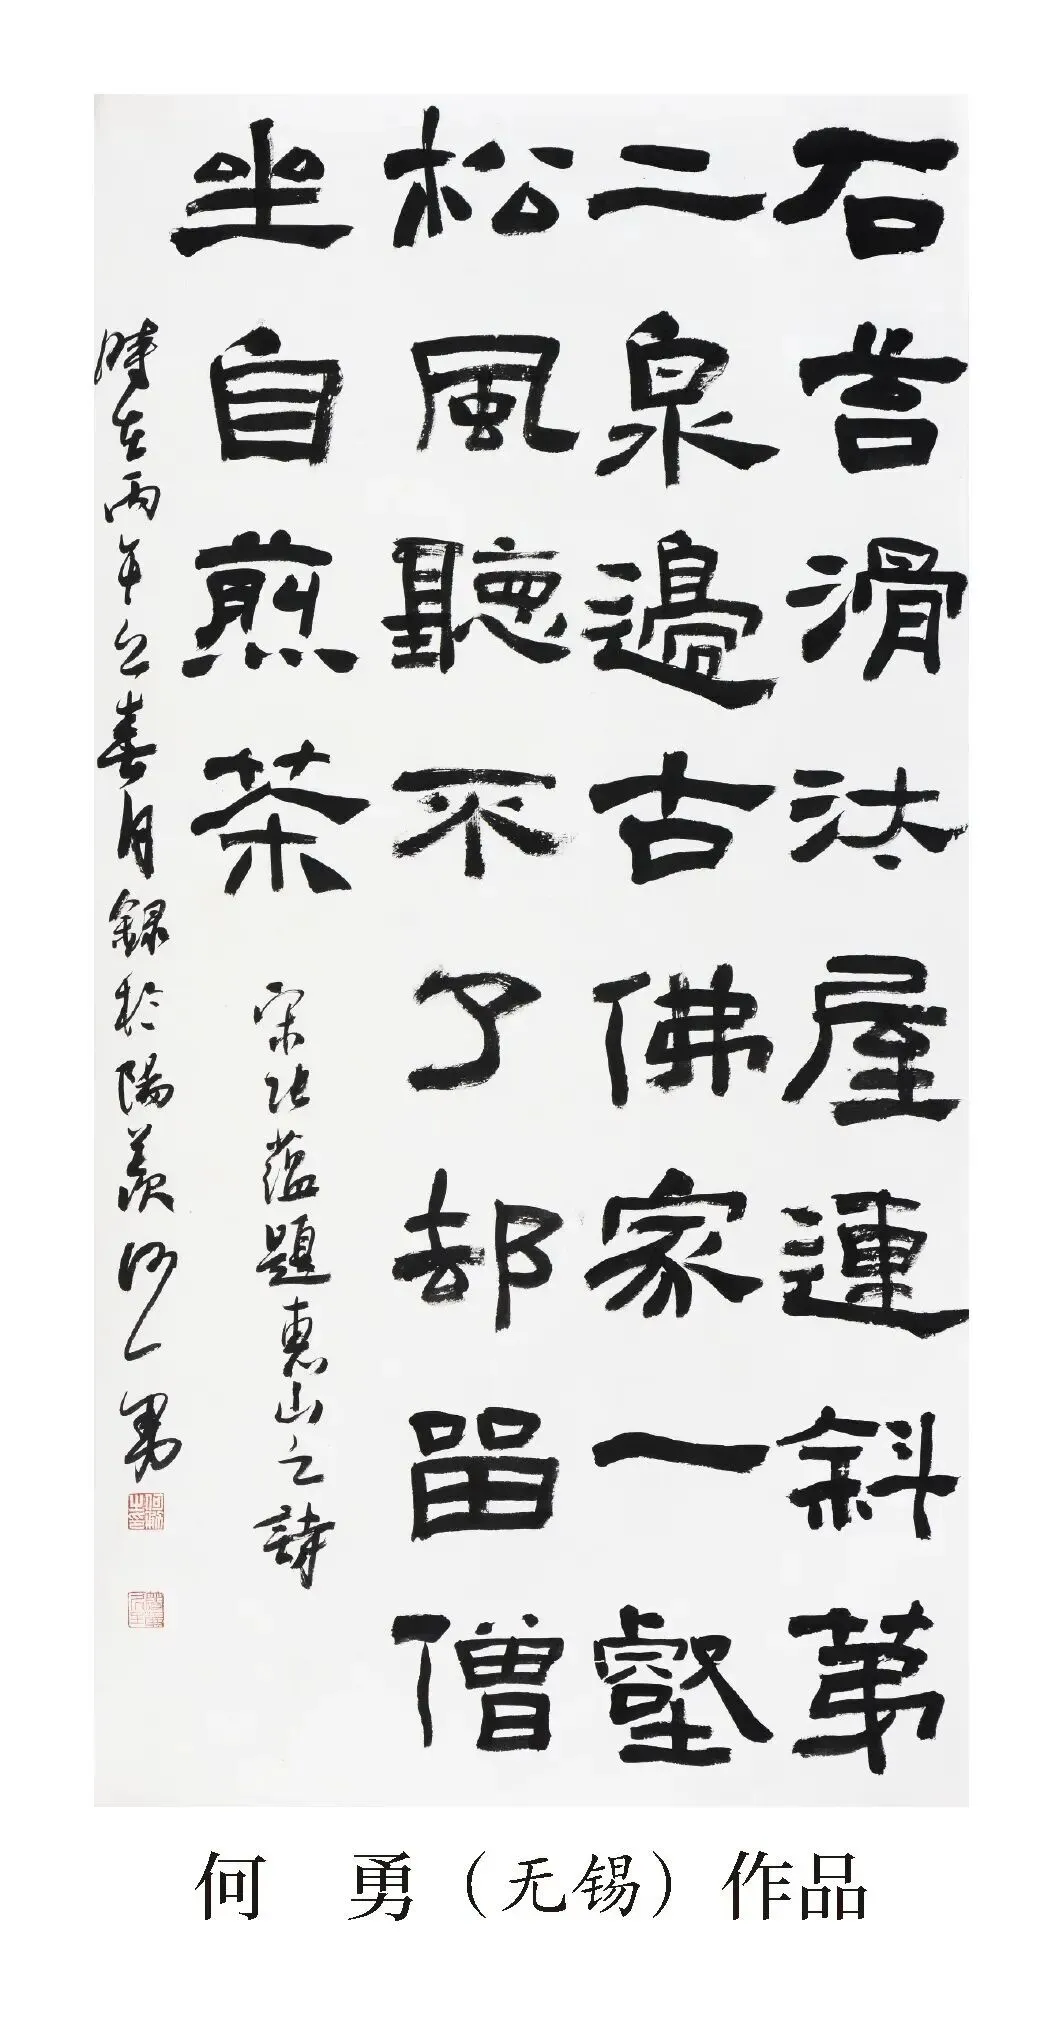 石苔滑汰屋連斜苐
二泉邊古佛家一壑
松風聽不了却留僧
坐自煎茶
宋張蘊題惠山之詩
時在丙午之春月錄於陽羨何勇
何 勇（无锡）作品